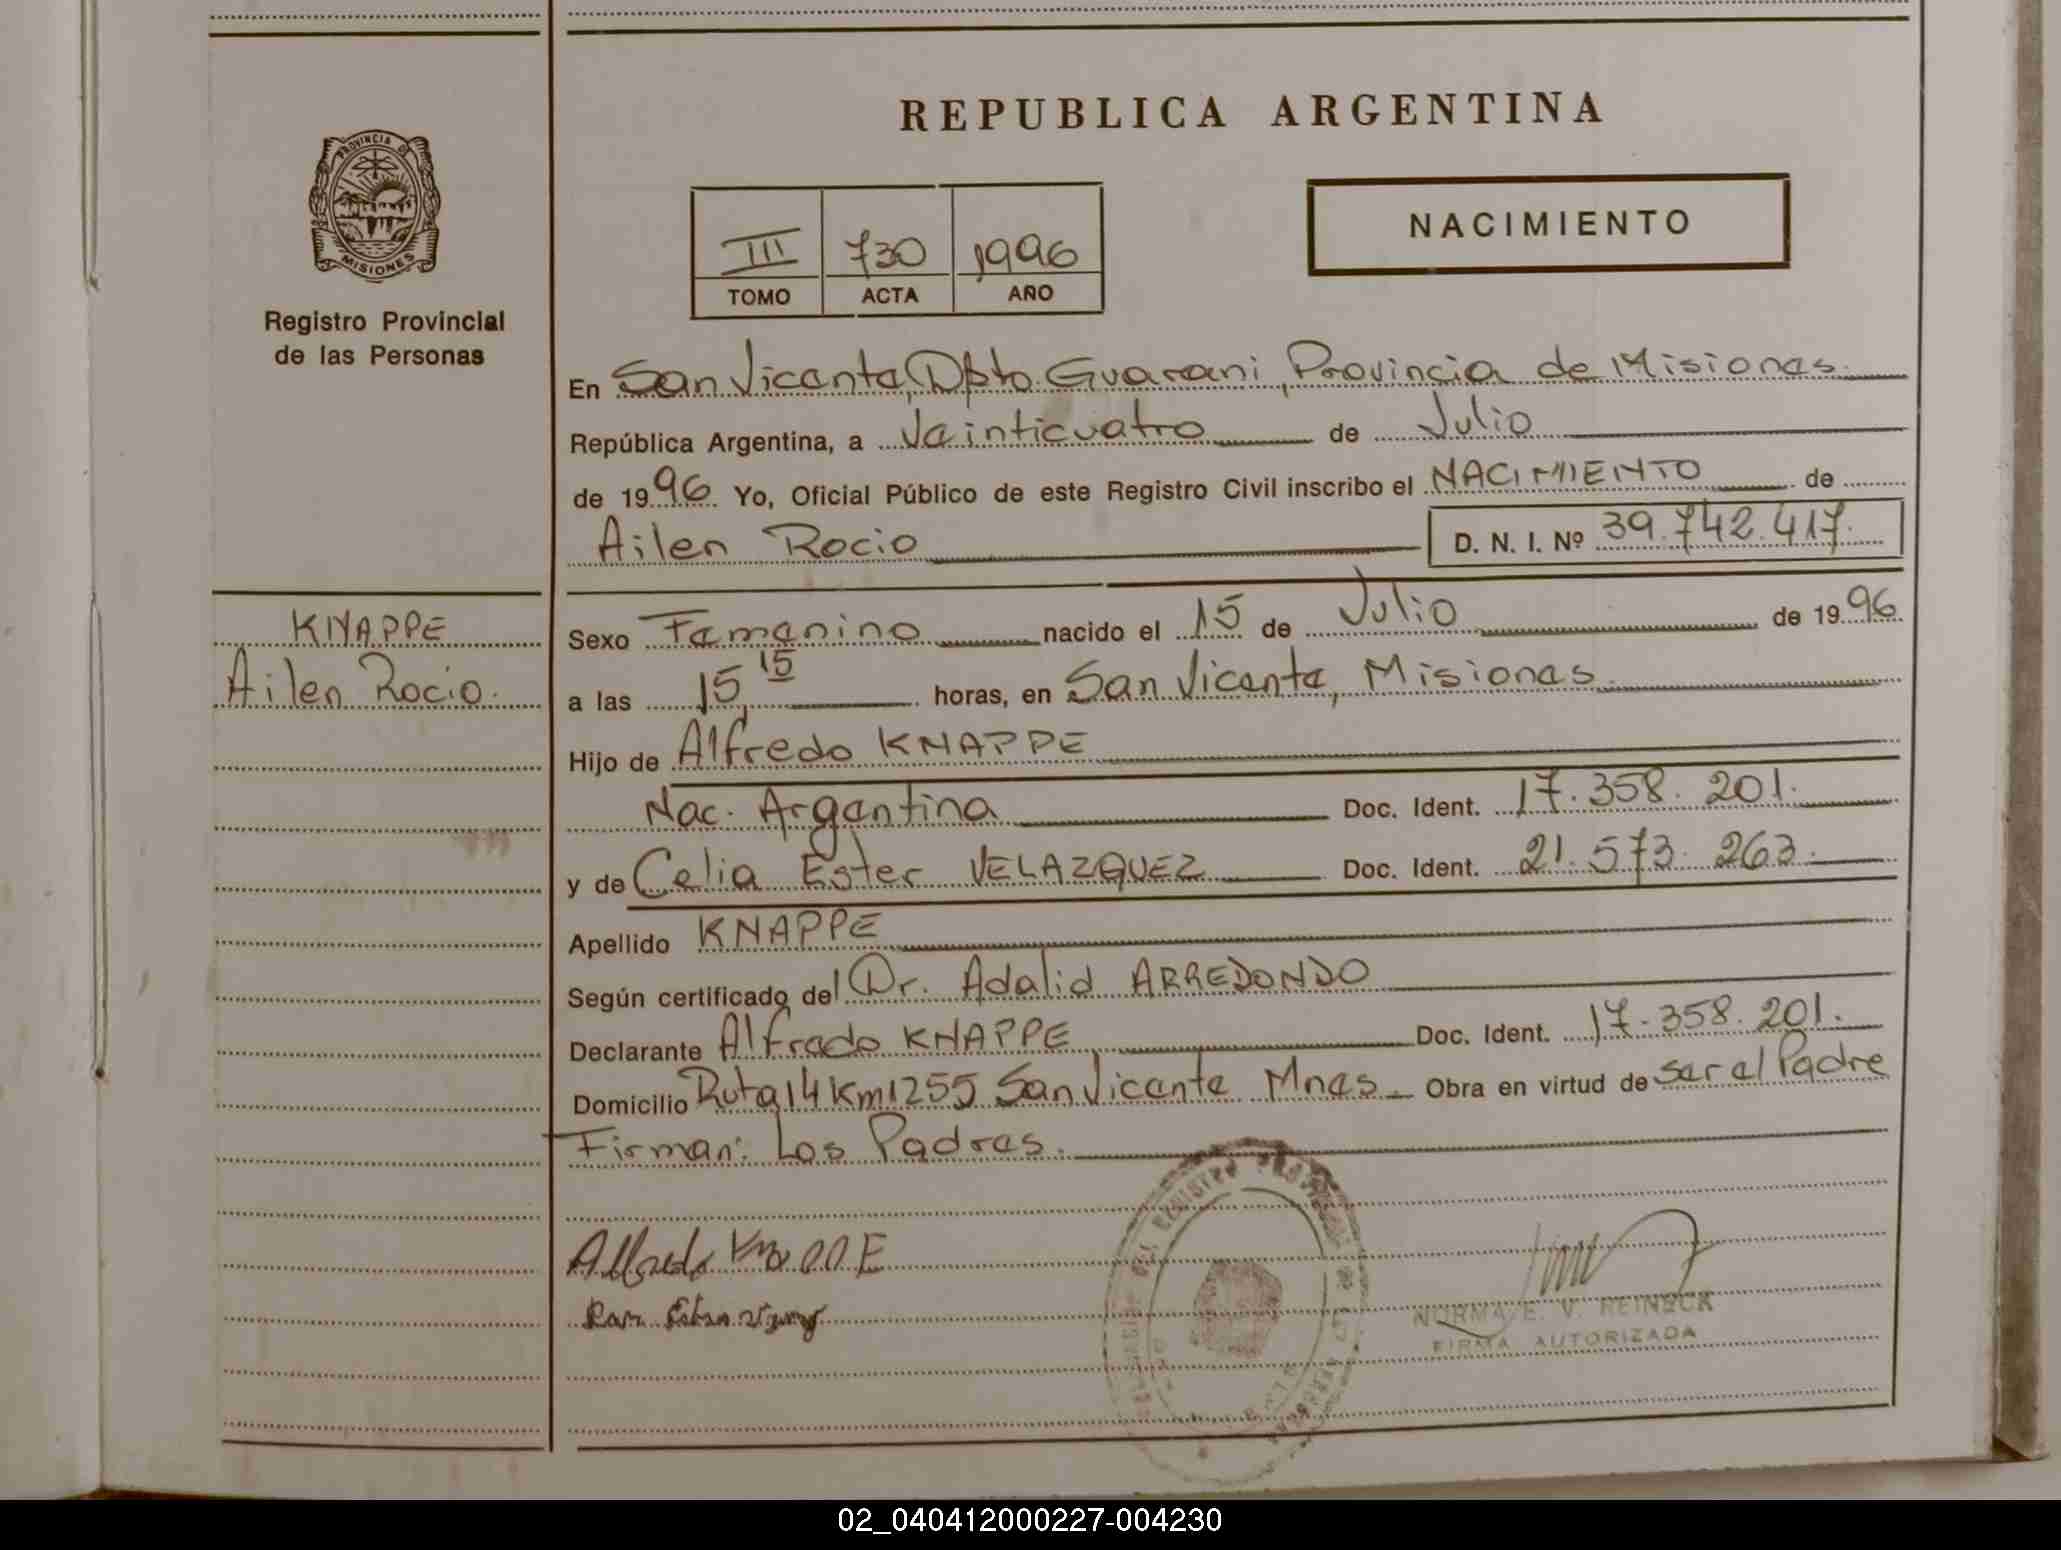 REPUBLICA ARGENTINA
PROVINCIA DE
MISIONES
Registro Provincial
de las Personas
III 730 1996
TOMO ACTA AÑO
NACIMIENTO
En San Vicente, Dpto. Guarani, Provincia de Misiones.
República Argentina, a Veinticuatro de Julio
de 1996 Yo, Oficial Público de este Registro Civil inscribo el NACIMIENTO de
Ailen Rocio D. N. I. Nº 39.742.417.
KNAPPE
Ailen Rocio.
Sexo Femenino nacido el 15 de Julio de 1996
a las 15,15 horas, en San Vicente, Misiones.
Hijo de Alfredo KNAPPE
Nac. Argentina Doc. Ident. 17.358.201.
y de Celia Ester VELAZQUEZ Doc. Ident. 21.573.263.
Apellido KNAPPE
Según certificado del Dr. Adalid ARREDONDO
Declarante Alfredo KNAPPE Doc. Ident. 17.358.201.
Domicilio Ruta 14 Km 1255 San Vicente Mnes. Obra en virtud de ser el Padre
Firman: Los Padres.
Alfredo KnappE
NORMA E. V. REINECK
FIRMA AUTORIZADA
02_040412000227-004230